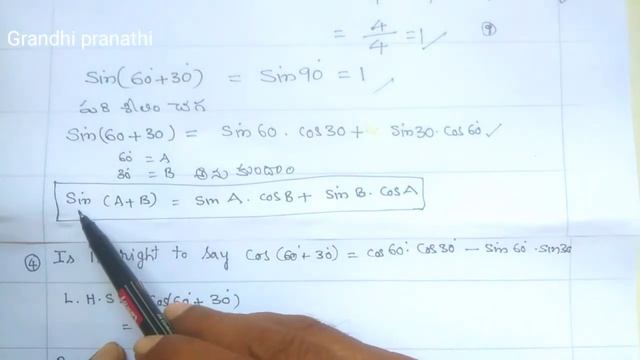 Grandhi pranathi
= 4/4 = 1 ✓ ⑨
Sin(60°+30°) = Sin90° = 1
Sin(60+30) = Sin60 . Cos30 + Sin30 . Cos60 ✓
60° = A
30° = B
Sin (A+B) = Sin A . CosB + Sin B . CosA
④ Is right to say Cos(60°+30°) = Cos60° . Cos30° − Sin60° . Sin30
L.H.S 60°+30°)
=